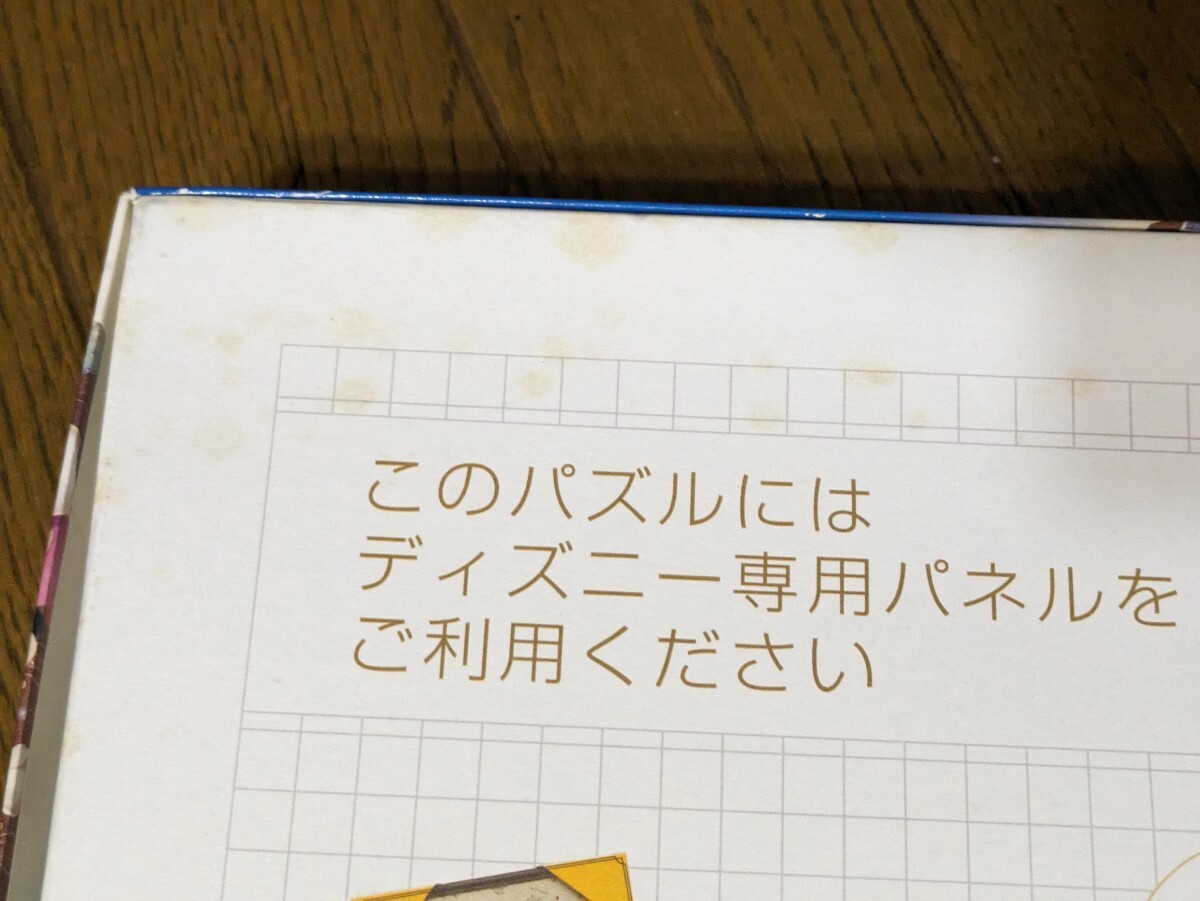 このパズルには
ディズニー専用パネルを
ご利用ください